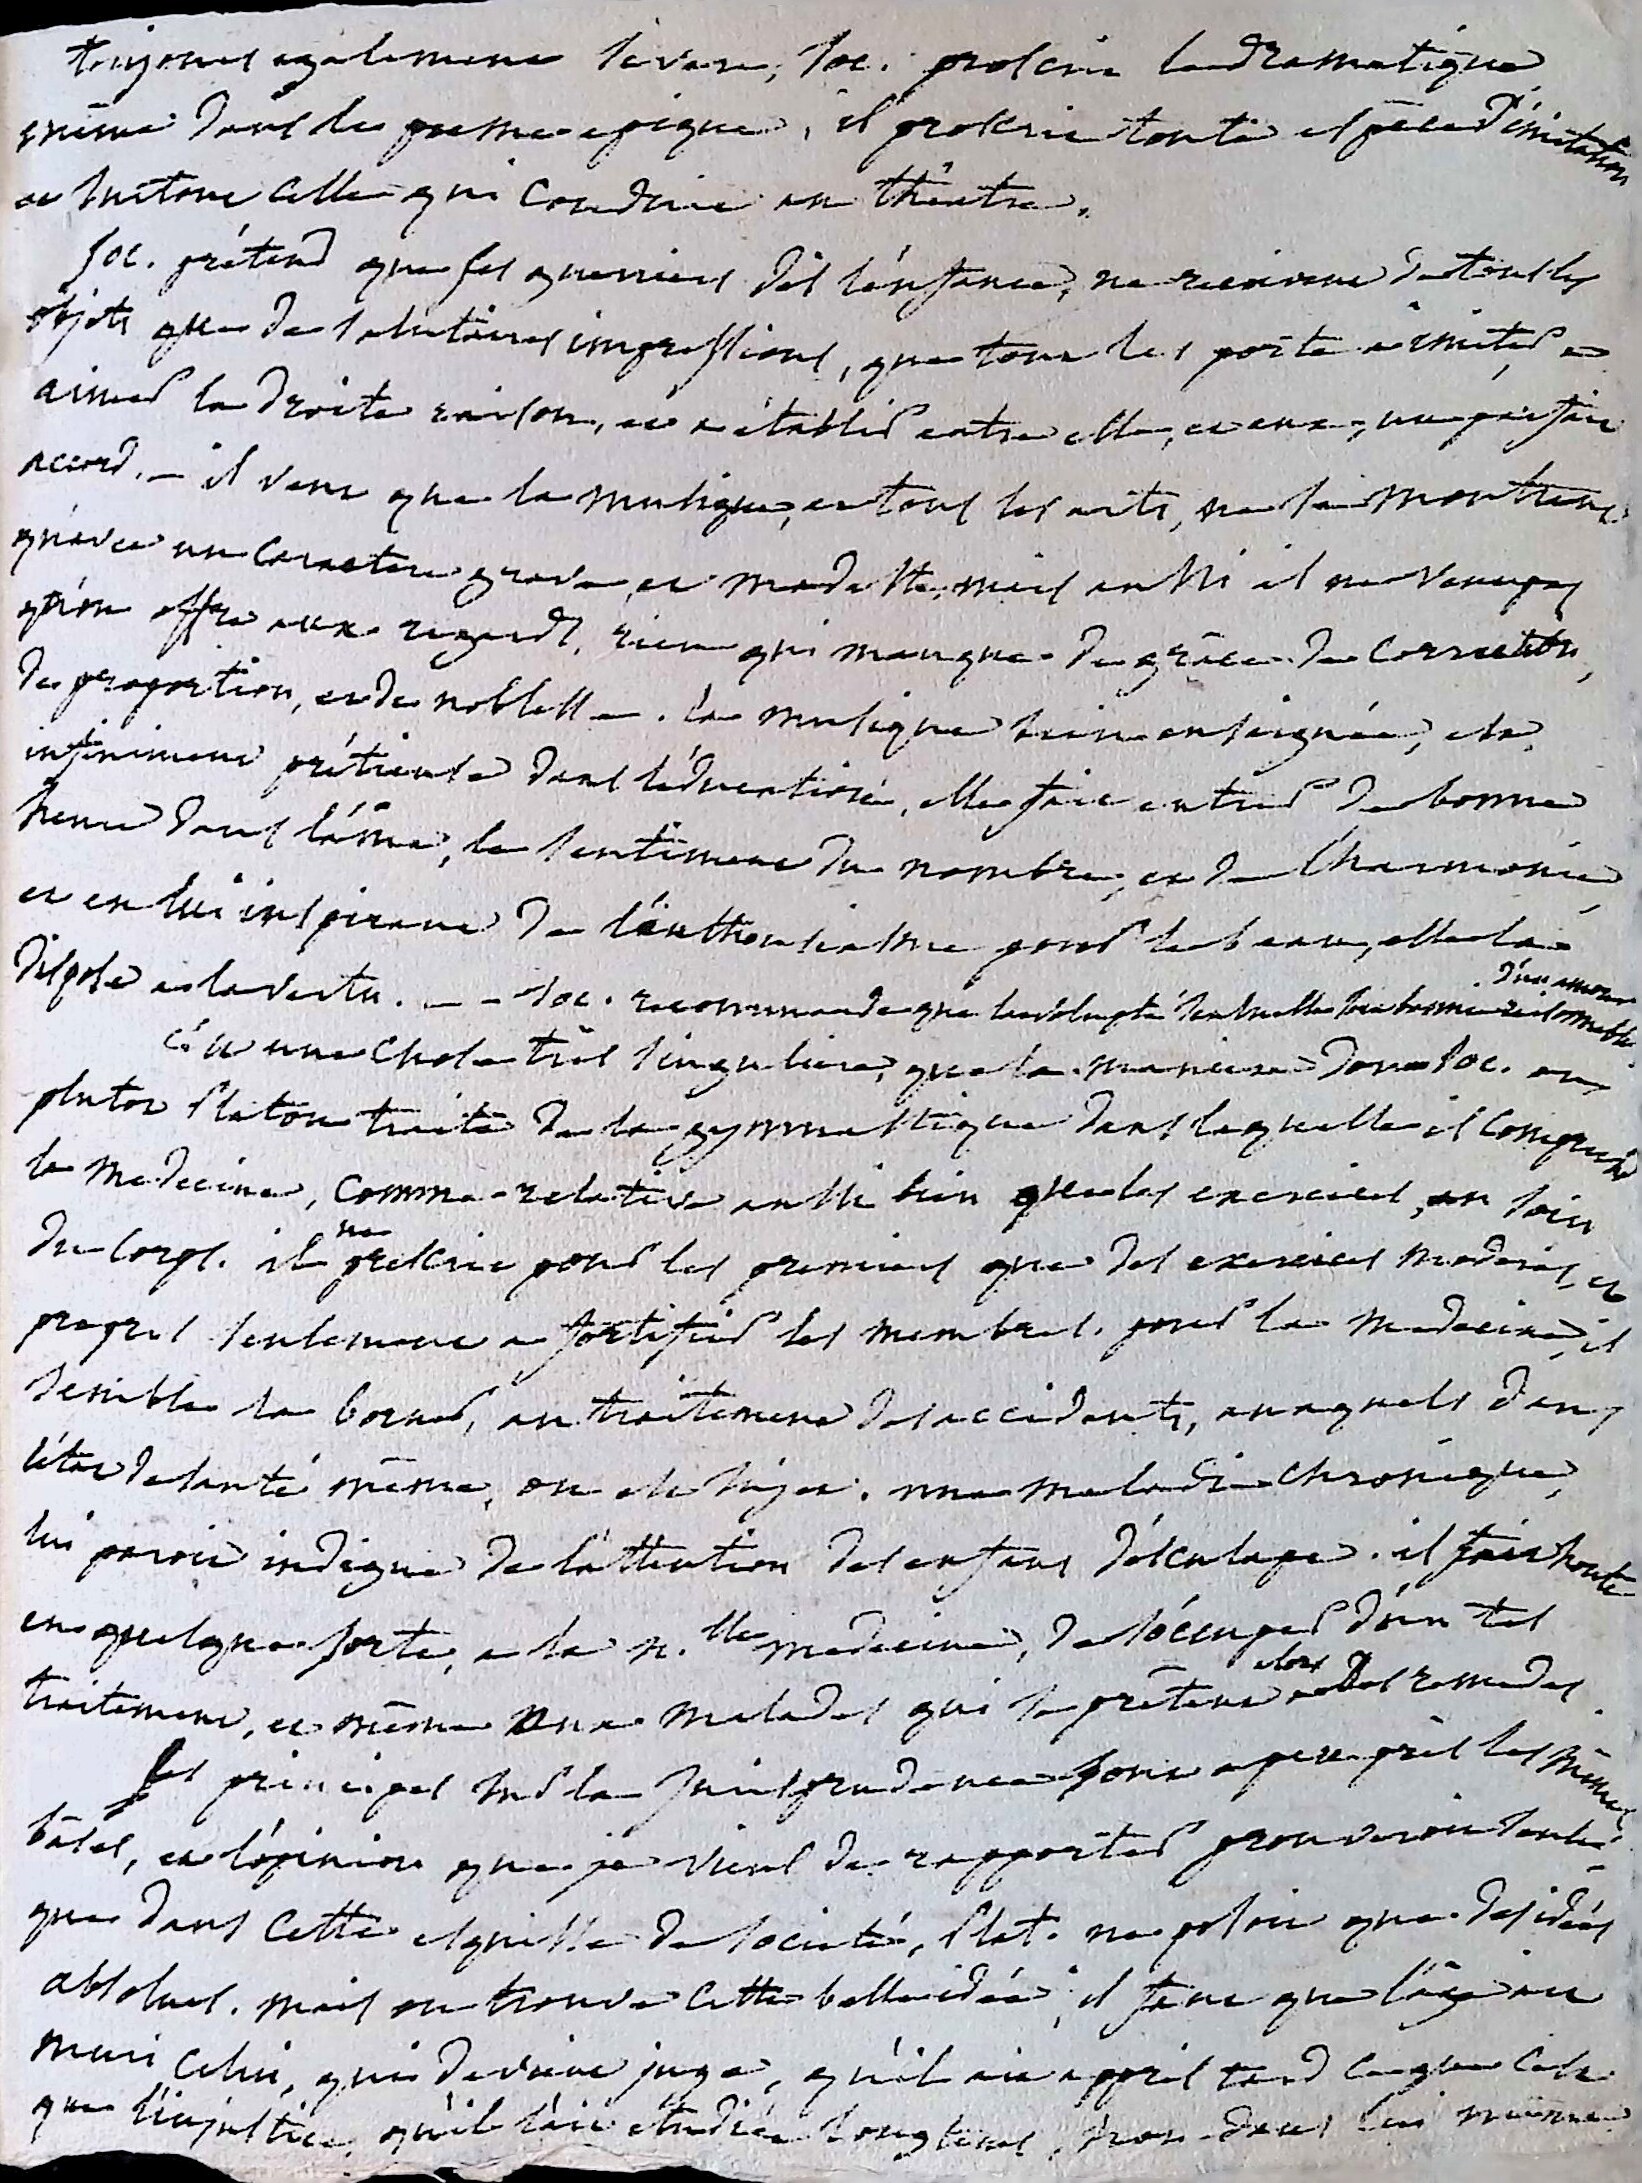 toujours egalement severe, Soc. proscrit le dramatique
même dans le poeme epique, il proscrit toute espèce d'imitation
et surtout celle qui conduit au théatre.
Soc. prétend que ses guerriers dès l'enfance, ne recoivent de tous les
objets que de salutaires impressions, que tout les porte à imiter, à
aimer la droite raison, et à établir entre elle, et eux, un parfait
accord. – il veut que la musique, et tous les arts, ne se montrent
qu'avec un caractere grave, et modeste, mais aussi il ne veut pas
qu'on offre aux regards, rien qui manque de grâce de correction,
de proportion, et de noblesse. la musique bien enseignée, est
infiniment prétieuse dans l'éducation, elle fait entrer de bonne
heure dans l'âme, le sentiment du nombre, et de l'harmonie,
et en lui inspirant de l'enthousiasme pour le beau, elle la
dispose a la vertu. – – Soc. recommande que la volupté sensuelle soit bannie d'un amour raisonnable.
c'est une chose très singuliere, que la maniere dont Soc. ou
plutot Platon traite de la gymnastique dans laquelle il comprend
la medecine, comme relative aussi bien que les exercices, au soin
du corps. il ne prescrit pour les premiers que des exercices moderés, et
propres seulement a fortifier les membres. pour la medecine, il
semble la borner, au traitement des accidents, auxquels dans
l'état de santé même, on est sujet. une maladie chronique,
lui paroit indigne de l'attention des enfans d'esculape. il fait honte
en quelque sorte, a la n.lle medecine, de s'occuper d'un tel
traitement, et même aux malades qui se prêtent alors a des remedes
Ses principes sur la jurisprudence sont a peu près les mêmes
bases, et l'opinion que je viens de rapporter prouveroit seule
que dans cette esquisse de societé, Plat. ne posoit que des idées
absolues. mais on trouve cette belle idée; il faut que l'âge ait
muri celui, qui devient juge, qu'il ait appris tard ce que c'est
que l'injustice, qu'il l'ait etudiée longtems, non dans lui même